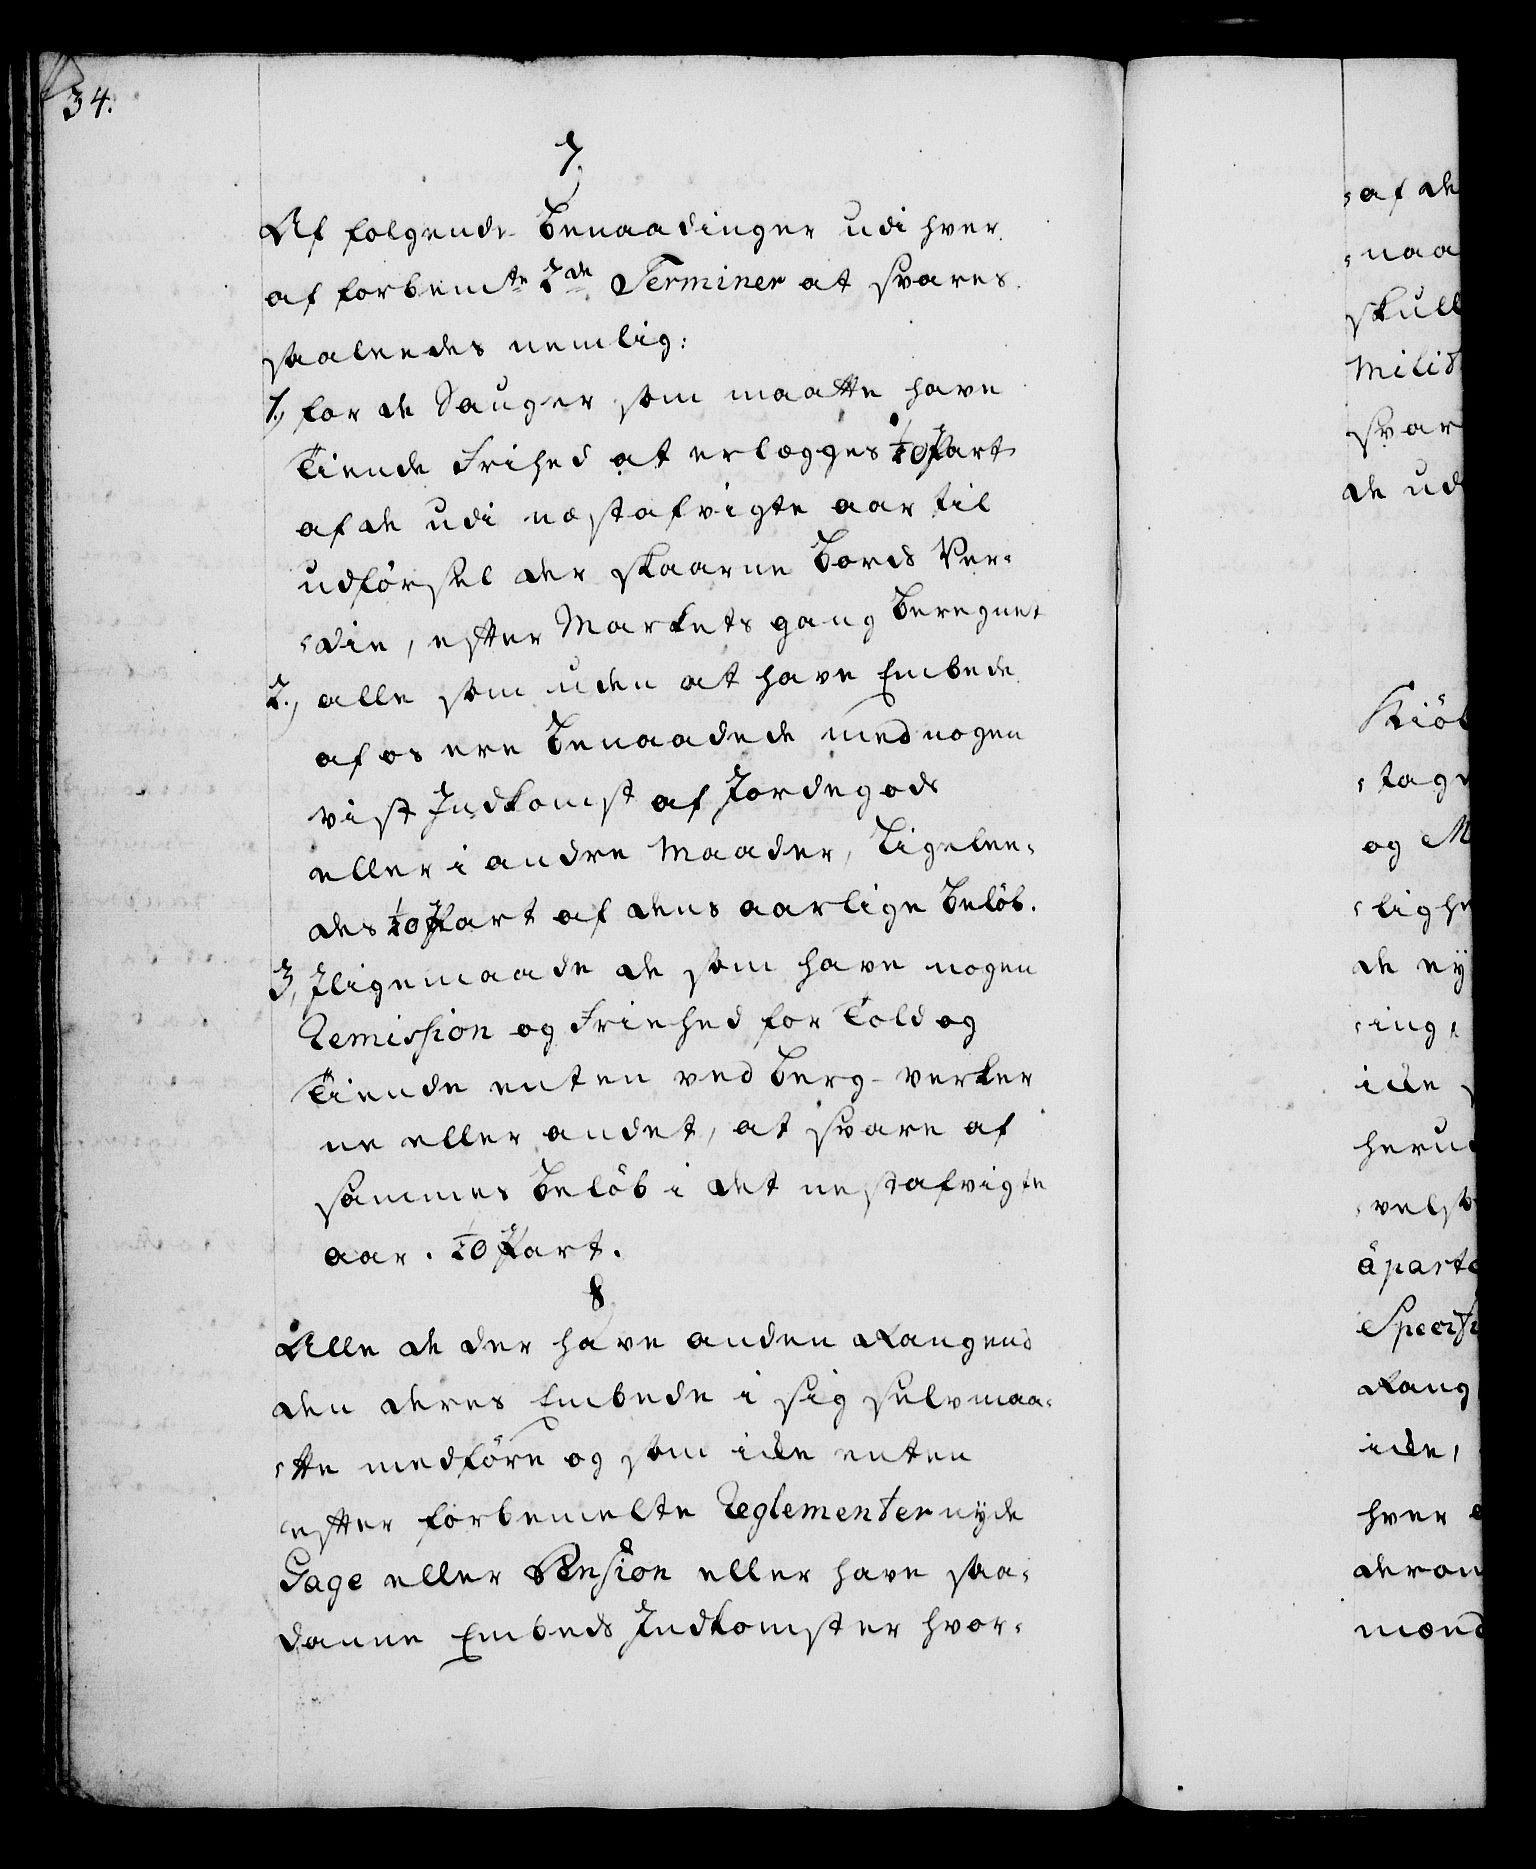 34.
7.
Af følgende Benaadinger udi hver
af forbemte 2de Terminer at svares
saaleedes nemlig:
1., for de Sauger som maatte have
Tiende Frihed at erlægges 1/10 Part
af de udi næstafvigte aar til
udførsel der skaarne Bords Ver-
die, efter Markets gang beregnet
2., alle som uden at have Embede
af os ere benaadede med nogen
vist Indkomst af Jordegods
eller i andre Maader, Ligelee-
des 1/10 Part af dens aarlige Beløb.
3, Iligemaade de som have nogen
Remission og Friehed for Told og
Tiende enten ved Berg-verker
ne eller andet, at svare af
sammes Beløb i det nestafvigte
aar. 1/10 Part.
8
Alle de der have anden Rang end
den deres Embede i sig selv maa-
tte medføre og som icke enten
efter forbemelte Reglementer nyde
Gage eller Pension eller have saa-
danne Embeds Indkomster hvor-
af de
naa
skull
Milit
svar
de ud
Kiöb
tage
og M
lighe
de ey
ing
icke
heru
velst
aparte
Specifi
Rang
icke,
hver
derom
mænd